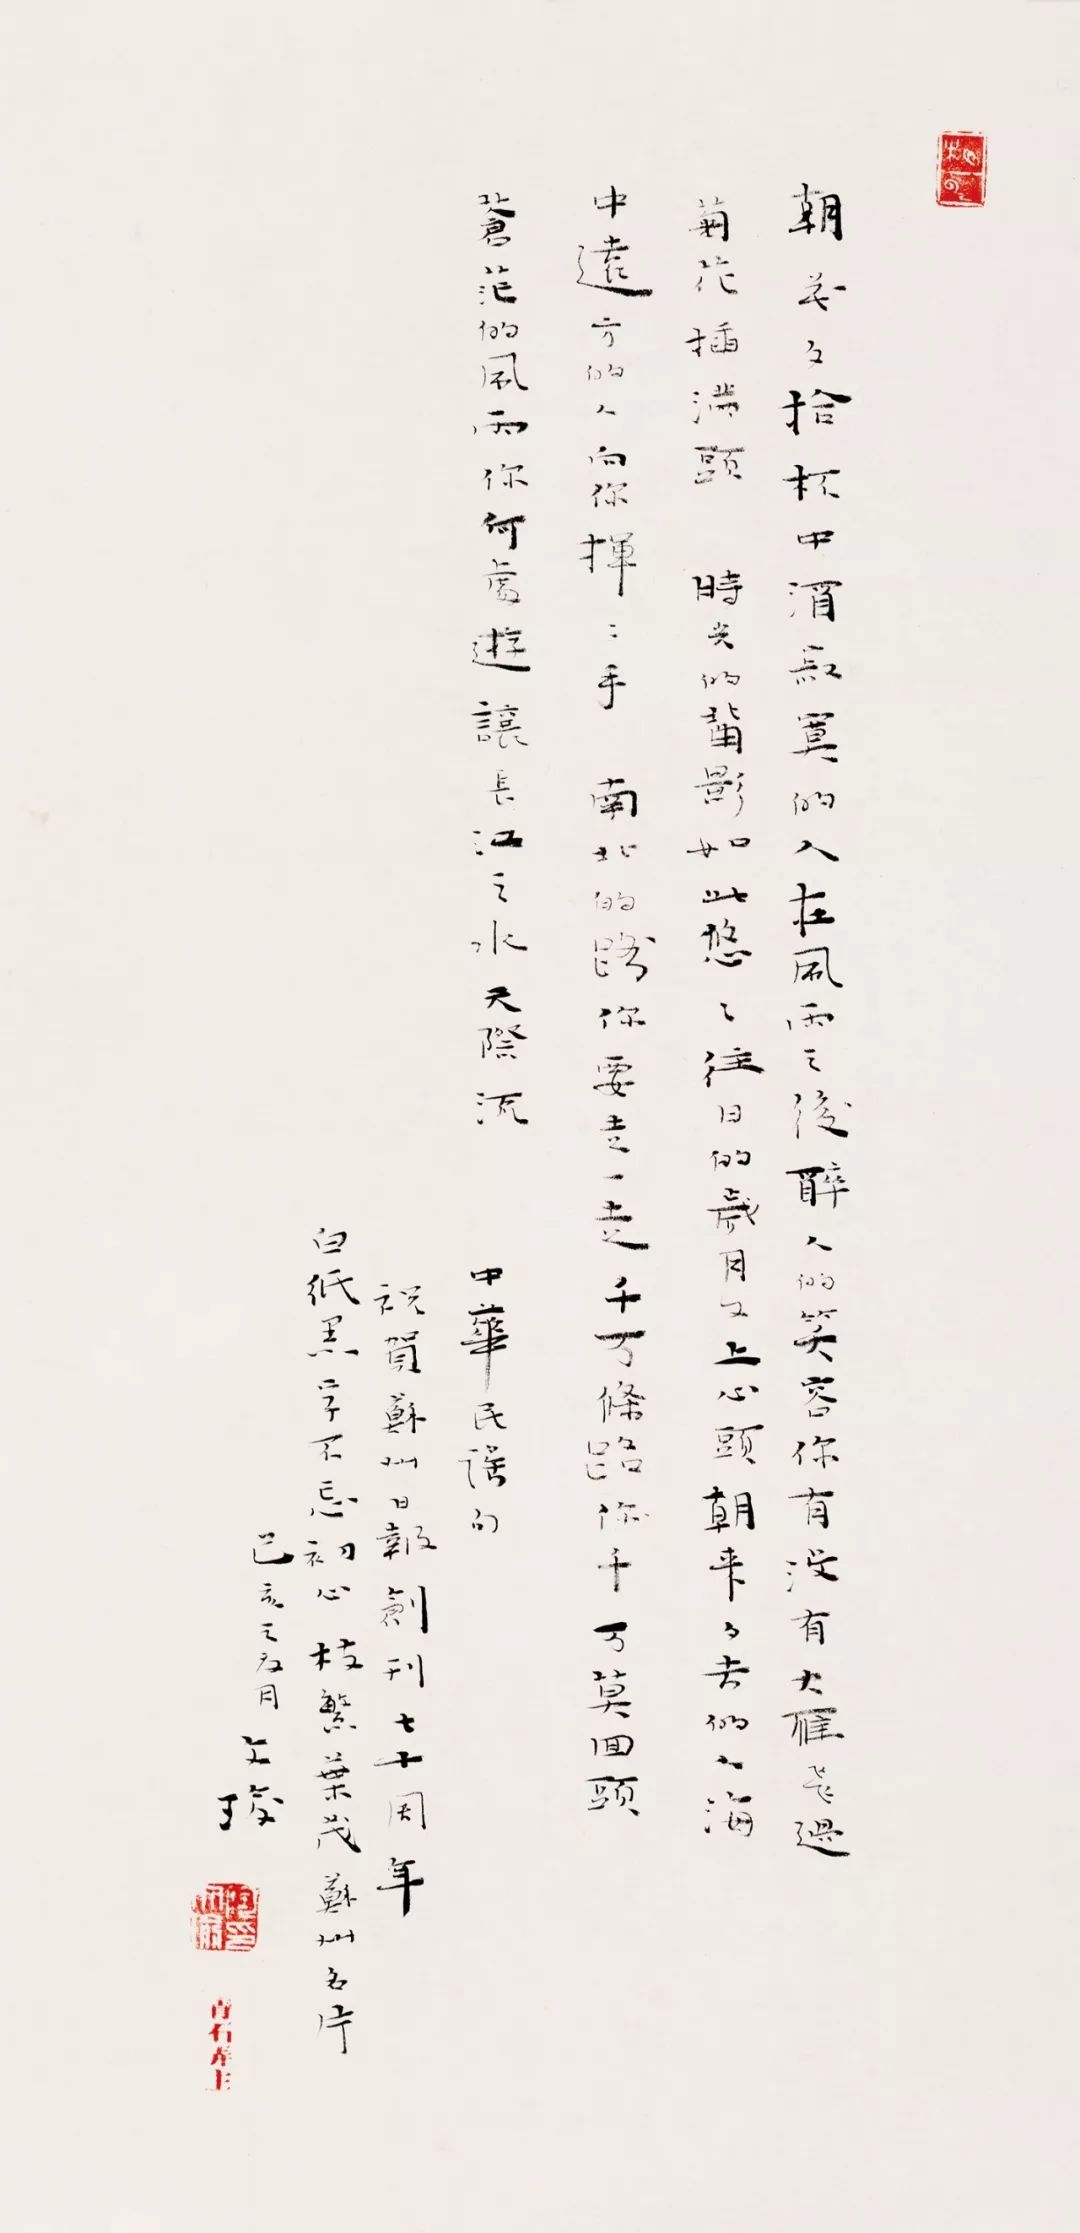 朝花夕拾杯中酒寂寞的人在風雨之後醉人的笑容你有没有大雁飛過
菊花插滿頭 時光的背影如此悠〻往日的歲月又上心頭朝来夕去的人海
中遠方的人向你揮〻手 南北的路你要走一走千万條路你千万莫回頭
蒼茫的風雨你何處遊讓長江之水天際流
中華民謡句
祝賀蘇州日報創刊七十周年
白纸黑字不忘初心枝繁葉茂蘇州名片
己亥之夏月
文璇
青石齋主